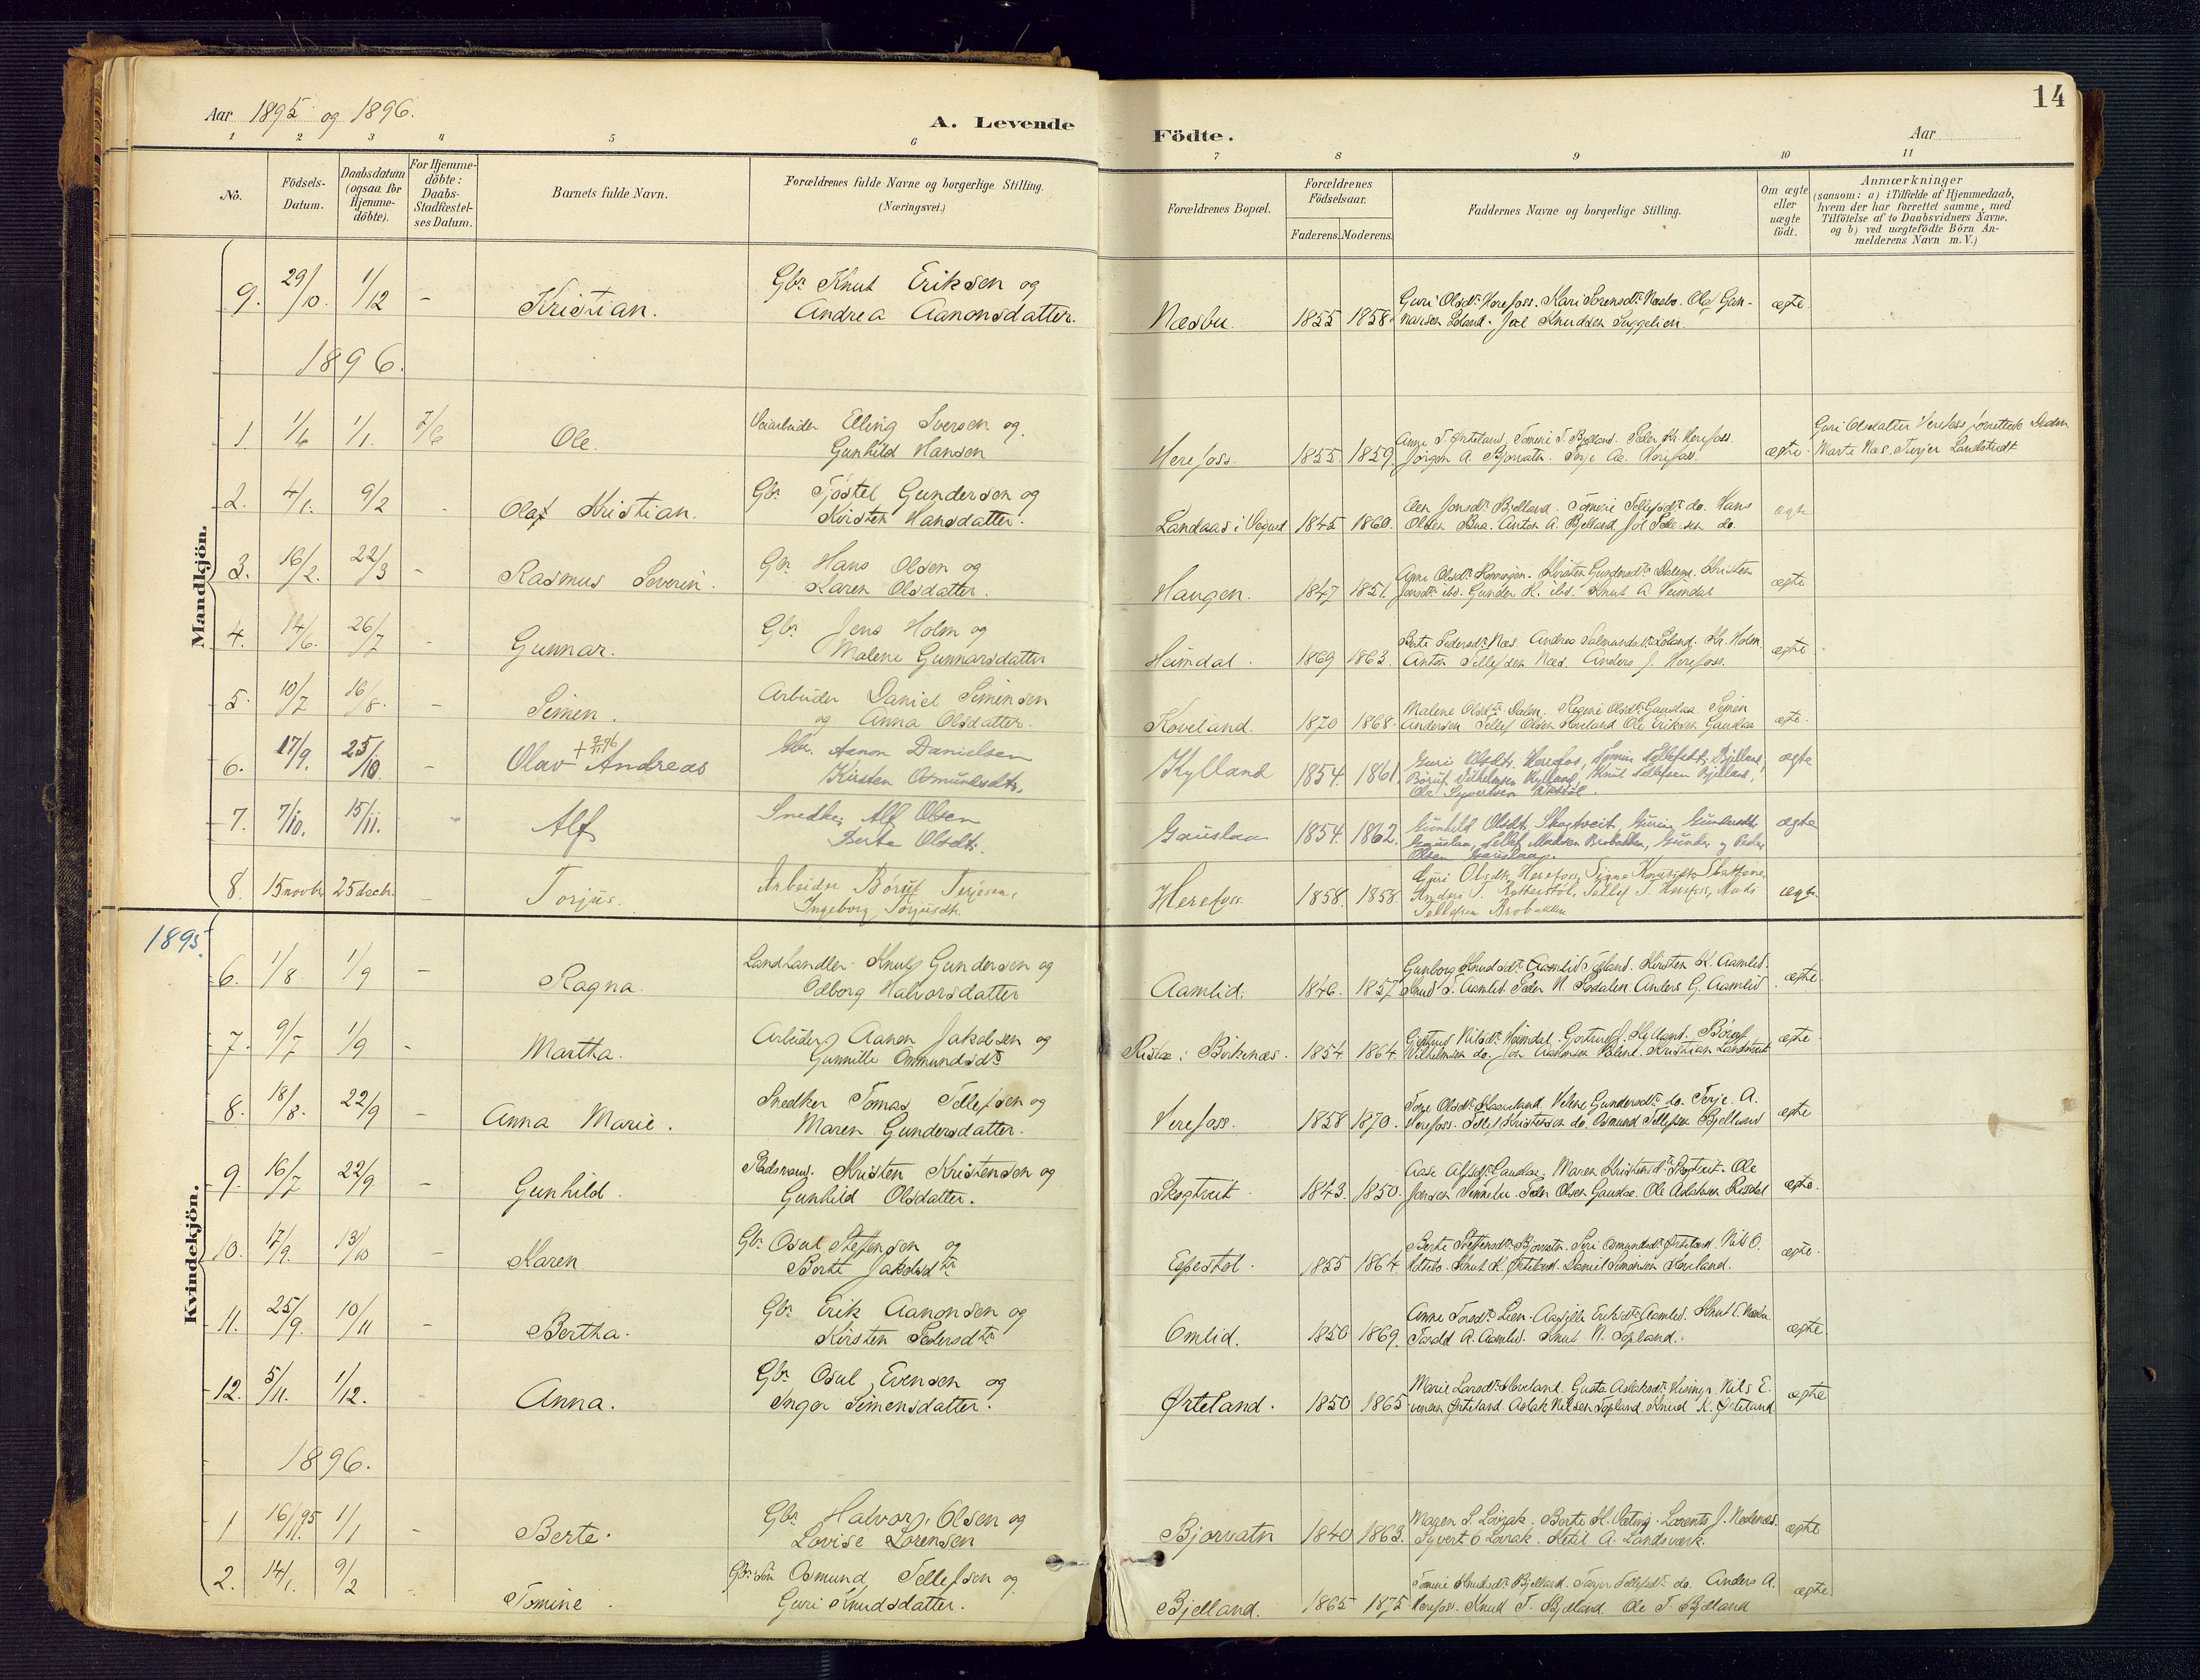 14
Aar 1895 og 1896.
A. Levende Födte.
Aar
1 2 3 4 5 6 7 8 9 10 11
No.
Födsels-Datum.
Daabsdatum (ogsaa for Hjemme-döbte).
For Hjemme-döbte: Daabs-Stadfæstel-ses Datum.
Barnets fulde Navn.
Forældrenes fulde Navne og borgerlige Stilling. (Næringsvei.)
Forældrenes Bopæl.
Forældrenes Födselsaar.
Faderens. Moderens.
Faddernes Navne og borgerlige Stilling.
Om ægte eller uægte födt.
Anmærkninger
(saasom: a) i Tilfælde af Hjemmedaab, hvem der har forrettet samme, med Tilföielse af to Daabsvidners Navne, og b) ved uægtefödte Börn An-melderens Navn m. V.)
Mandkjön.
9. 29/10. 1/12 - Kristian. Gbr. Knut Eriksen og
Andrea Aanonsdatter. Næsbu. 1855 1858. Guri Olsdtr Herefoss. Kari Sorensdtr Næsbø. Ole Gun-
narsen Loland. Joel Knudsen ægte.
1896.
1. 1/1. 7/6 Ole. Veiarbeider Elling Iversen og
Gunhild Hansen Herefoss. 1855 1859. Anne T. Ørteland, Tomine T. Bjelland. Peder Kr. Herefoss.
Jörgen A. Bjorvatn. Terje Aa. Herefoss. ægte. Guri Olsdatter Herefoss forrettede Daaben
Marte Næs. Terjer Landstvedt
2. 4/1. 9/2 - Olaf Kristian. Gbr. Tjöstel Gundersen og
Kirsten Hansdatter. Landaas i Vegusd 1845 1860. Elen Jonsdtr Bjelland. Tomine Tellefsdtr do. Hans
Olsen Bua. Anton A. Bjelland, do. ægte
3. 16/2. 22/3 - Rasmus Severin. Gbr. Hans Olsen og
Karen Olsdatter. Haugen. 1847 1851. Kirsten Gundersdtr Kristen
Gunder K. ibd. Knut A. Heimdal ægte
4. 14/6. 26/7 - Gunnar. Gbr. Jens Holm og
Malene Gunnarsdatter Heimdal. 1869 1863. Berte Pedersdtr Næs. Andrea Salmundsdtr Loland. Kr. Holm.
Anton Tellefsen Næs. Anders J. Herefoss. ægte
5. 10/7 16/8. - Simen. Arbeider Daniel Simensen
og Anna Olsdatter. Koveland. 1870 1868. Malene Olsdtr Regine Olsdtr Gauslaa. Simen
Andersen. Tellef Olsen Ole Eriksen Gauslaa ægte.
6. 17/9. 25/10. - Olav Andreas + Gbr. Aanon Danielsen
Kirsten Osmundsdtr. Kylland 1854. 1861 Guri Olsdtr. Herefos, Tomine Tellefsdtr, Bjelland,
Börüf Vilhelmsen Kylland, Knut Tellefsen Bjelland,
Ole Syvertsen ægte
7. 7/10. 15/11. - Alf Snedker Alf Olsen
Berte Olsdtr. Gauslaa 1854. 1862. Gunhild Olsdtr. Skogtveit, Gunersdtr
Gauslaa, Tellef Madsen Brobakken, Gunder og Peder
Olsen Gauslaa. ægte
8. 15 novbr. 25 decbr. - Torjus. Arbeider Börüf Terjesen,
Ingeborg Torjusdtr. Herefoss 1858. 1858. Guri Olsdtr. Herefoss, Signe
Anders T. Tellef T. Herefoss, Mads
Tellefsen Brobakken ægte.
1895.
Kvindekjön.
6. 1/8. 1/9 - Ragna. Landhandler Knut Gundersen og
Odborg Halvorsdatter Aamlid. 1846. 1857. Gunborg Knudsdtr Aamlid Topland. Kirsten K. Aamlid.
Knud T. Aamlid. Peder N. Anders G. Aamlid. ægte.
7. 9/7 1/9 - Martha. Arbeider Aanon Jakobsen og
Gunnille Ommundsdtr i Birkenæs. 1854 1864. Nilsdtr Heimdal. J. Kylland. Börüf
Vilhelmsen do. Jon Aanonsen Kristian Landstvedt ægte.
8. 18/8. 22/9 - Anna Marie. Snedker Tomas Tellefsen og
Maren Gundersdatter. Herefoss. 1858 1870. Olsdtr Helene Gundersdtr do. Terje A.
Herefoss. Tellef Kristensen do. Osmund Tellefsen Bjelland ægte
9. 16/7 22/9 - Gunhild. Kristen Kristensen og
Gunhild Olsdatter. Skogtveit. 1843. 1850. Aase Alfsdtr Gauslaa. Maren Kristensdtr Skogtveit. Ole
Jensen Peder Olsen Gauslaa. Ole Aslaksen Risdal ægte.
10. 17/9. 13/10 - Karen Gbr. Osul Steffensen og
Berte Jakobsdtr Eppestöl. 1855 1864. Berte Steffensdtr Bjorvatn. Siri Osmundsdtr Ørteland. Nils O.
Knut K. Ørteland. Daniel Simensen Koveland. ægte.
11. 25/9. 10/11 - Bertha. Gbr. Erik Aanonsen og
Kirsten Pedersdtr Omlid. 1850 1869. Anne Torsdtr Lien. Eriksdtr Aamlid. Knut
Tarald A. Aamlid. Knut N. Topland. ægte.
12. 5/11. 1/12. - Anna. Gbr. Osul Evensen og
Inger Simensdatter. Ørteland. 1850 1865 Marie Larsdtr Koveland. Gusta Aslaksdtr Nils E-
vensen Ørteland. Aslak Nilsen Topland. Knud K. Ørteland ægte
1896.
1 16/11.95 1/1 - Berte. Gbr. Halvor Olsen og
Lovise Lorensen Bjorvatn 1840 1863. Maren S. Lövrak. Berte H. Lorents J. Nedenæs.
Syvert O Lövrak. Ketil A. Landsverk. ægte
2. 14/1. 9/2 - Tomine. Gbr. Søn Osmund Tellefsen og
Guri Knudsdatter. Bjelland. 1865 1875 Tomine Knudsdtr Bjelland. Tellefsdtr do. Anders A.
Herefoss. Knud T. Bjelland. Ole T. Bjelland ægte.